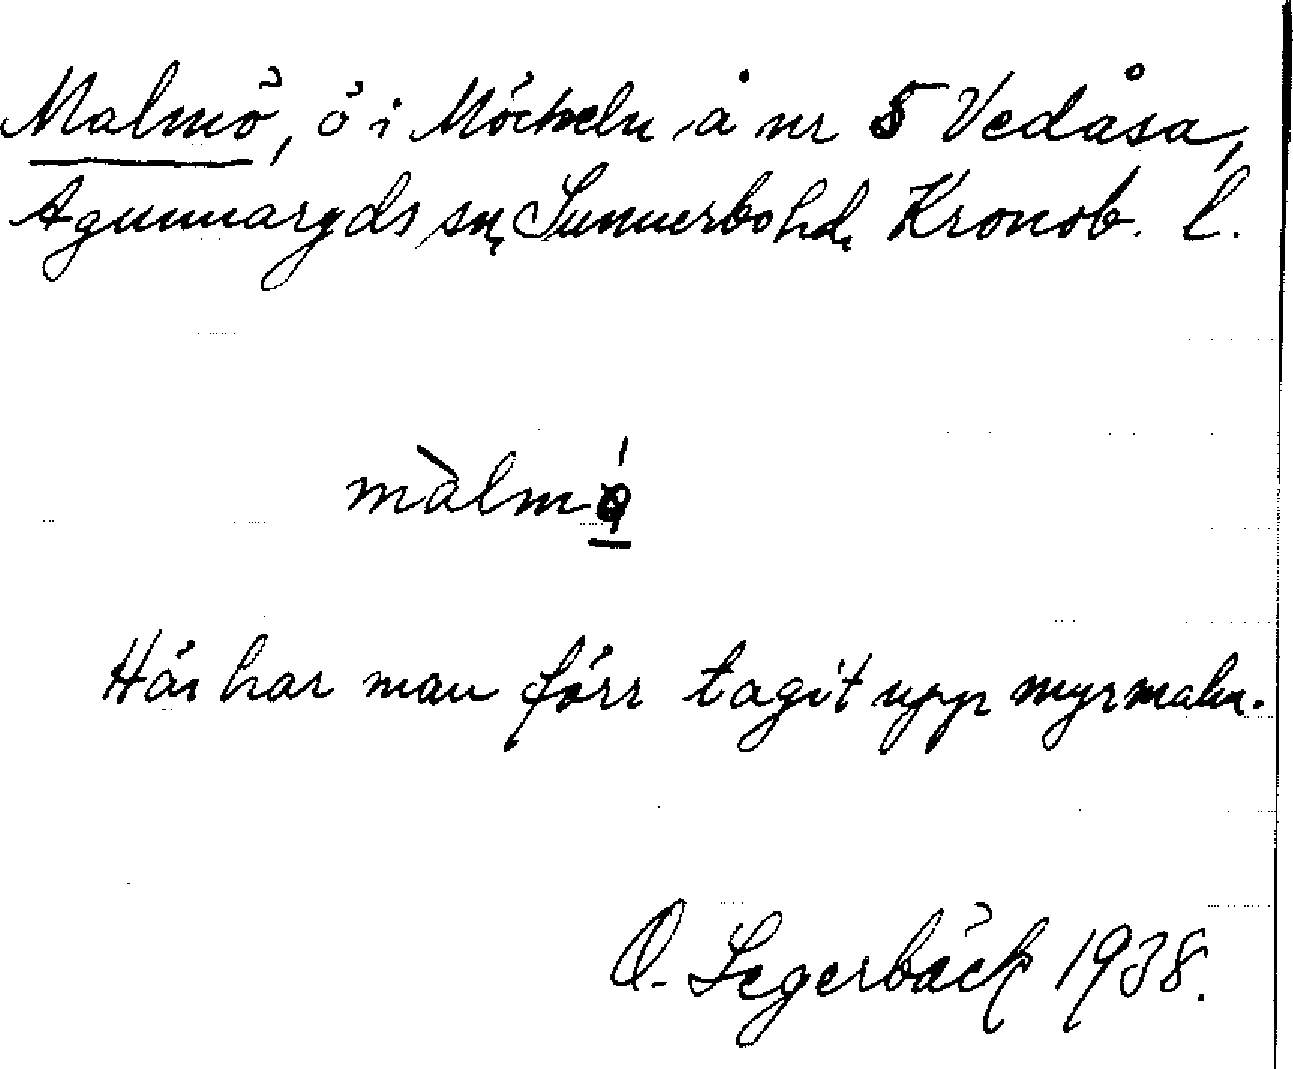 Malmö, ö i Möckeln å nr 5 Vedåsa,
Agunnaryds sn, Sunnerbo hd, Kronob. l.
màlmǫ́
Här har man förr tagit upp myrmalm.
O. Segerbäck 1938.